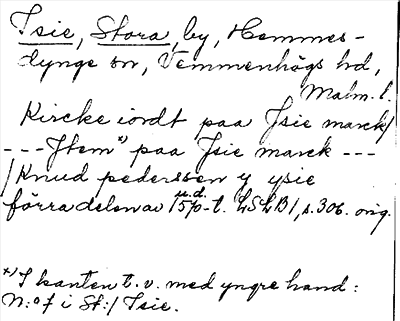 Isie, Stora, by, Hemmes-
dynge sn, Vemmenhögs hd,
Malm. l.
Kircke iordt paa Jsie marck/
---Jtem*) paa Jsie marck ---
/Knud pederssen y ysie
u.d.
förra delen av 1570-t. LSLB1, s.306. orig.
*) I kanten t.v. med yngre hand:
N:o f i St:/ Isie.